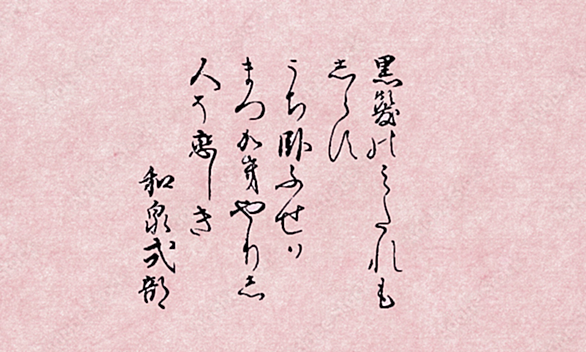 黒髪のみたれも
しらす
うち臥ふせは
まつかきやりし
人そ恋しき
和泉式部